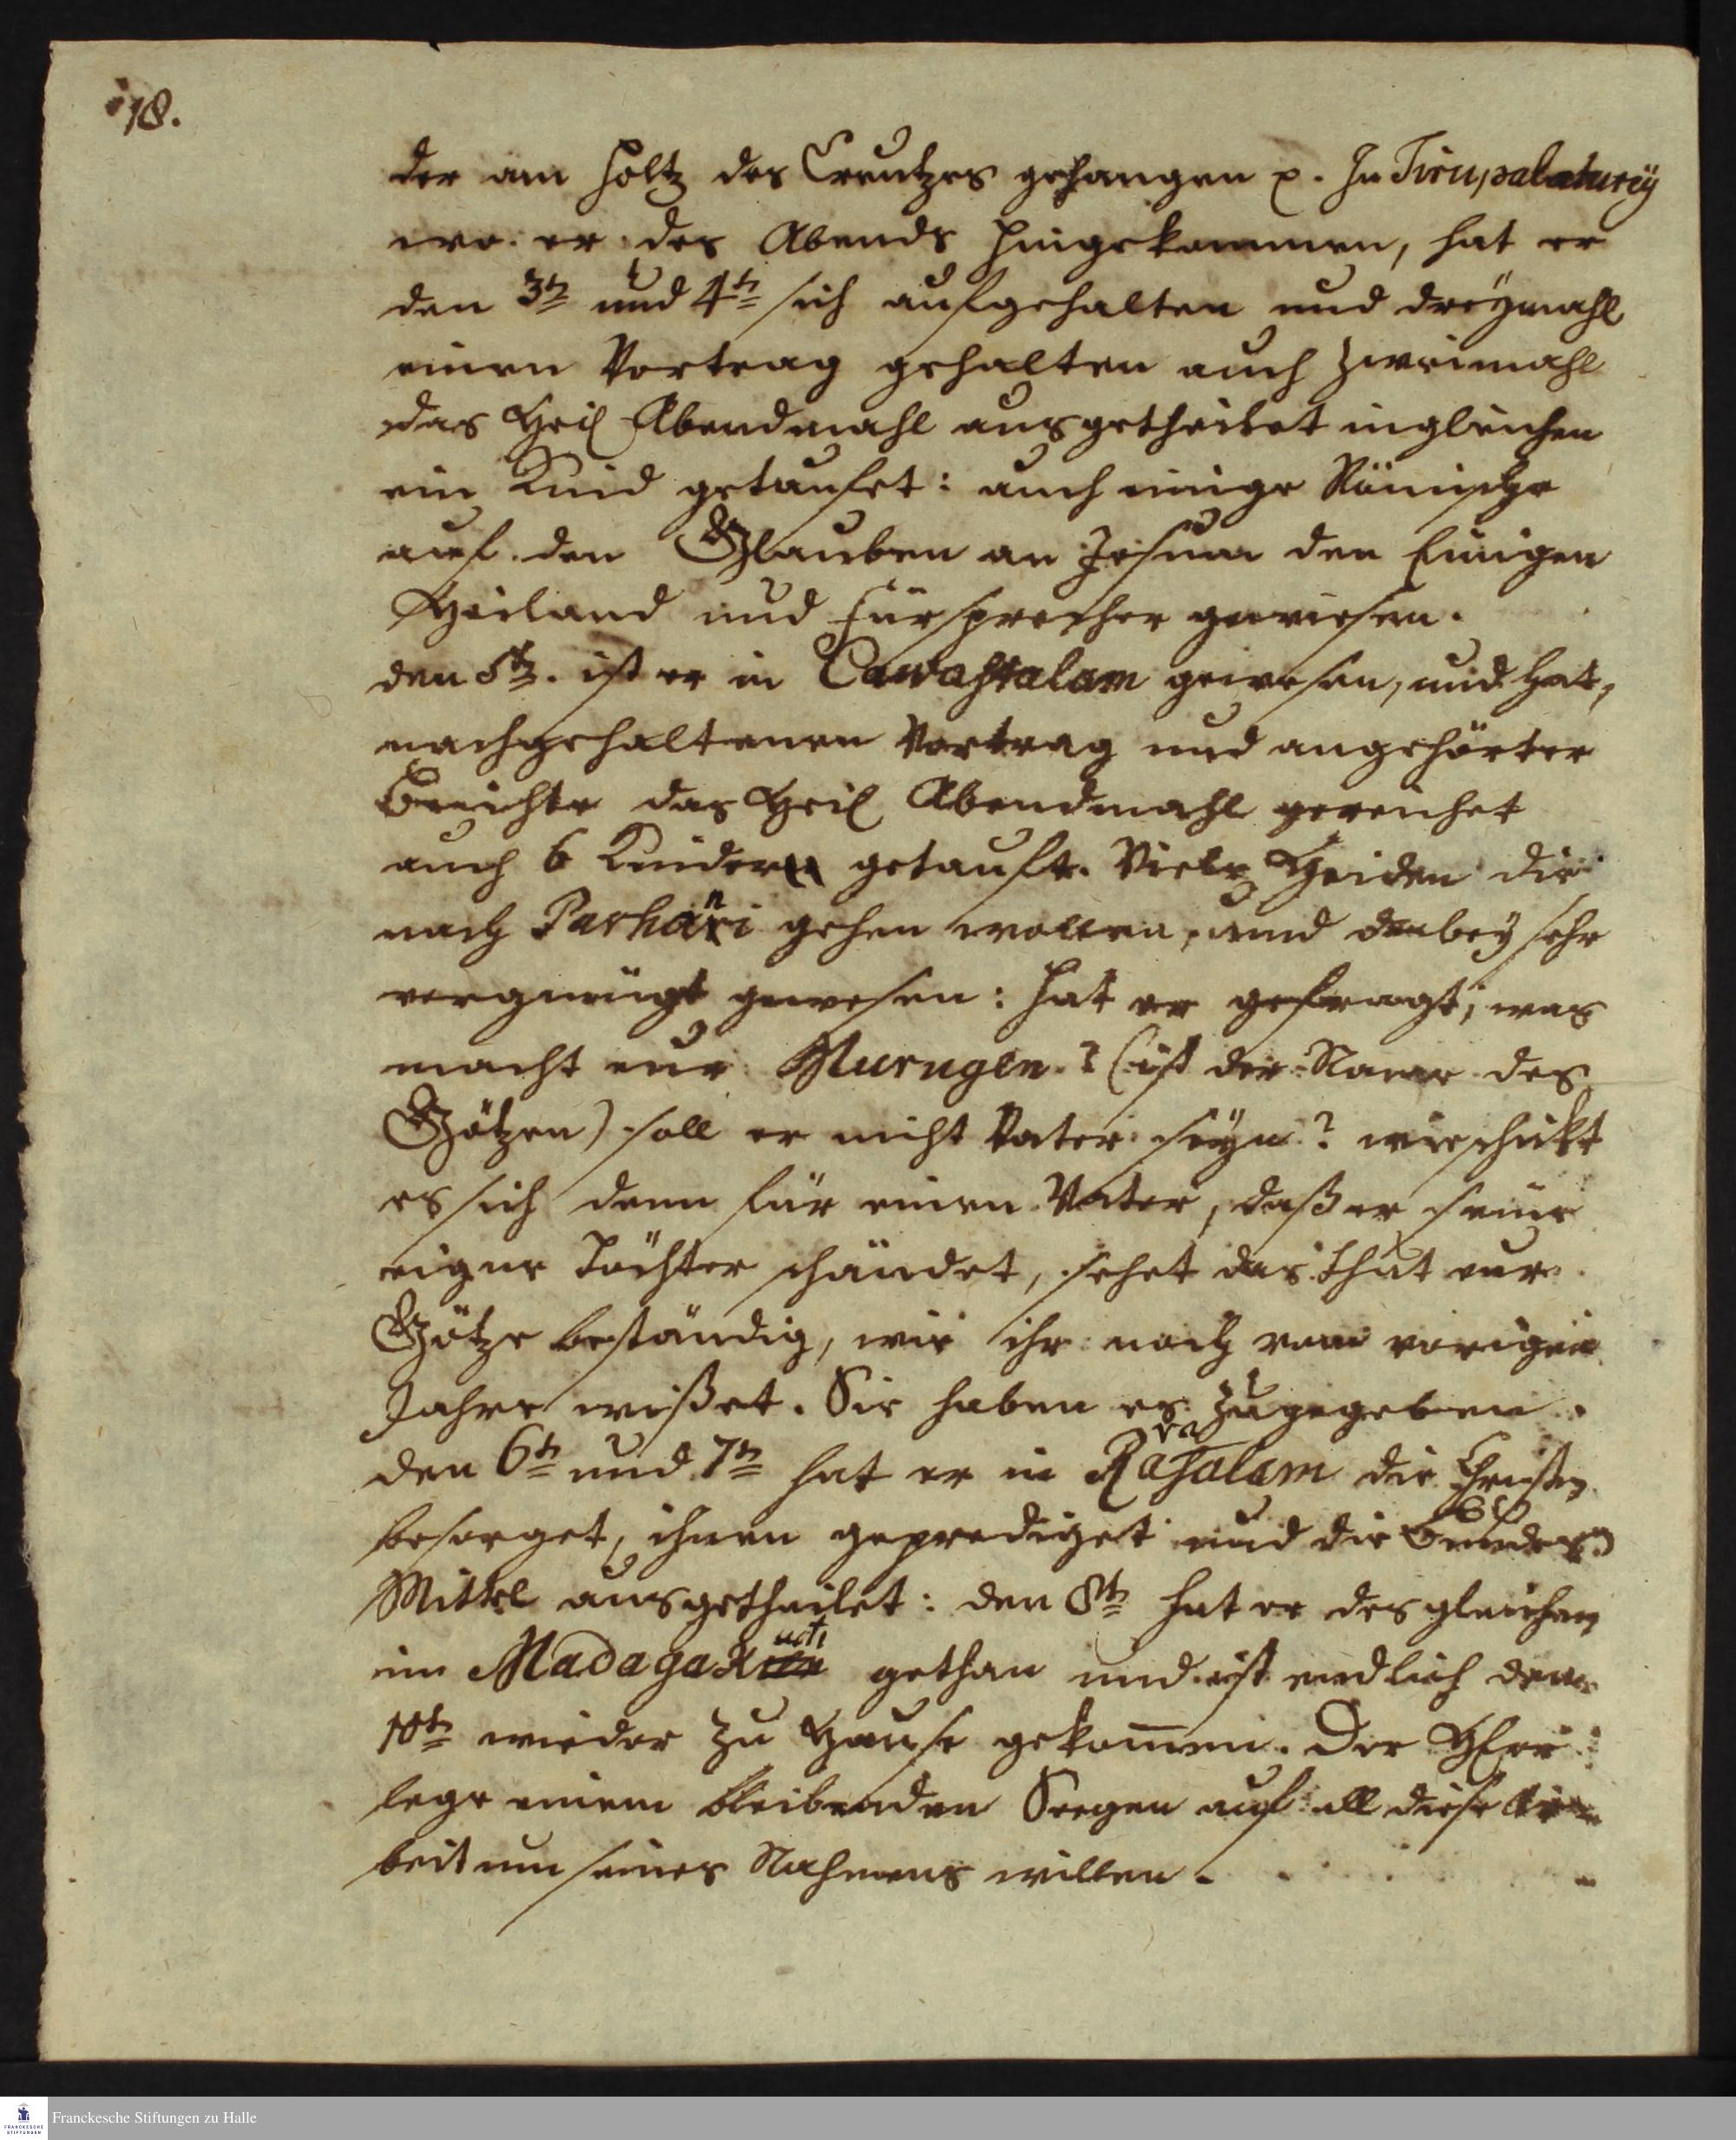 18.
der am Holtz des Creutzes gehangen p. In Tirupalaturey
wo er des Abends hingekommen, hat er
den 3t. und 4t. sich aufgehalten und dreymahl
einen Vortrag gehalten auch zweimahl
das Heil Abendmahl ausgetheilet ingleichen
ein Kind getaufet: auch einige Römische
auf den Glauben an Jesum den Einigen
Heiland und Fürsprecher gewiesen.
den 5t. ist er in Cawastalam gewesen, und hat,
nachgehaltenen Vortrag und angehörter
Beichte das Heil Abendmahl gereichet
auch 6 Kinder getauft. Viele Heiden die
nach Parhani gehen wollen, und dabey sehr
vergnügt gewesen: hat er gefragt; was
macht eur Murugen? (ist der Name des
Götzen) soll er nicht Vater seyn? wie schikt
es sich denn für einen Vater, daß er seine
eigne Töchter schändet, sehet das thut eur
Götze beständig, wie ihr noch vom vorigen
Jahre wißet. Sie haben es zugegeben.
den 6t. und 7t. hat er in Ravasalam die Christen
besorget, ihnen geprediget und die Gnaden
Mittel ausgetheilet: den 8t. hat er desgleichen
im Madagakudi gethan und ist endlich den
10t. wieder zu Hause gekommen. Der HErr
lege einem bleibenden Seegen auf all diese Ar
beit um seines Nahmens willen.
Franckesche Stiftungen zu Halle
FRANCKESCHE
STIFTUNGEN